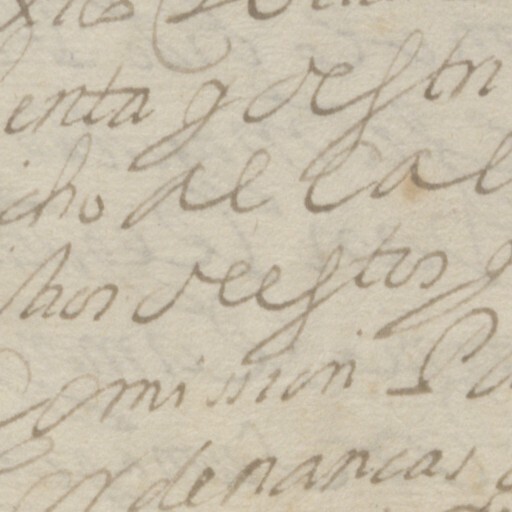 enta y destri
cho de la l
hos deestos q
Comission Pa
Ordenancas